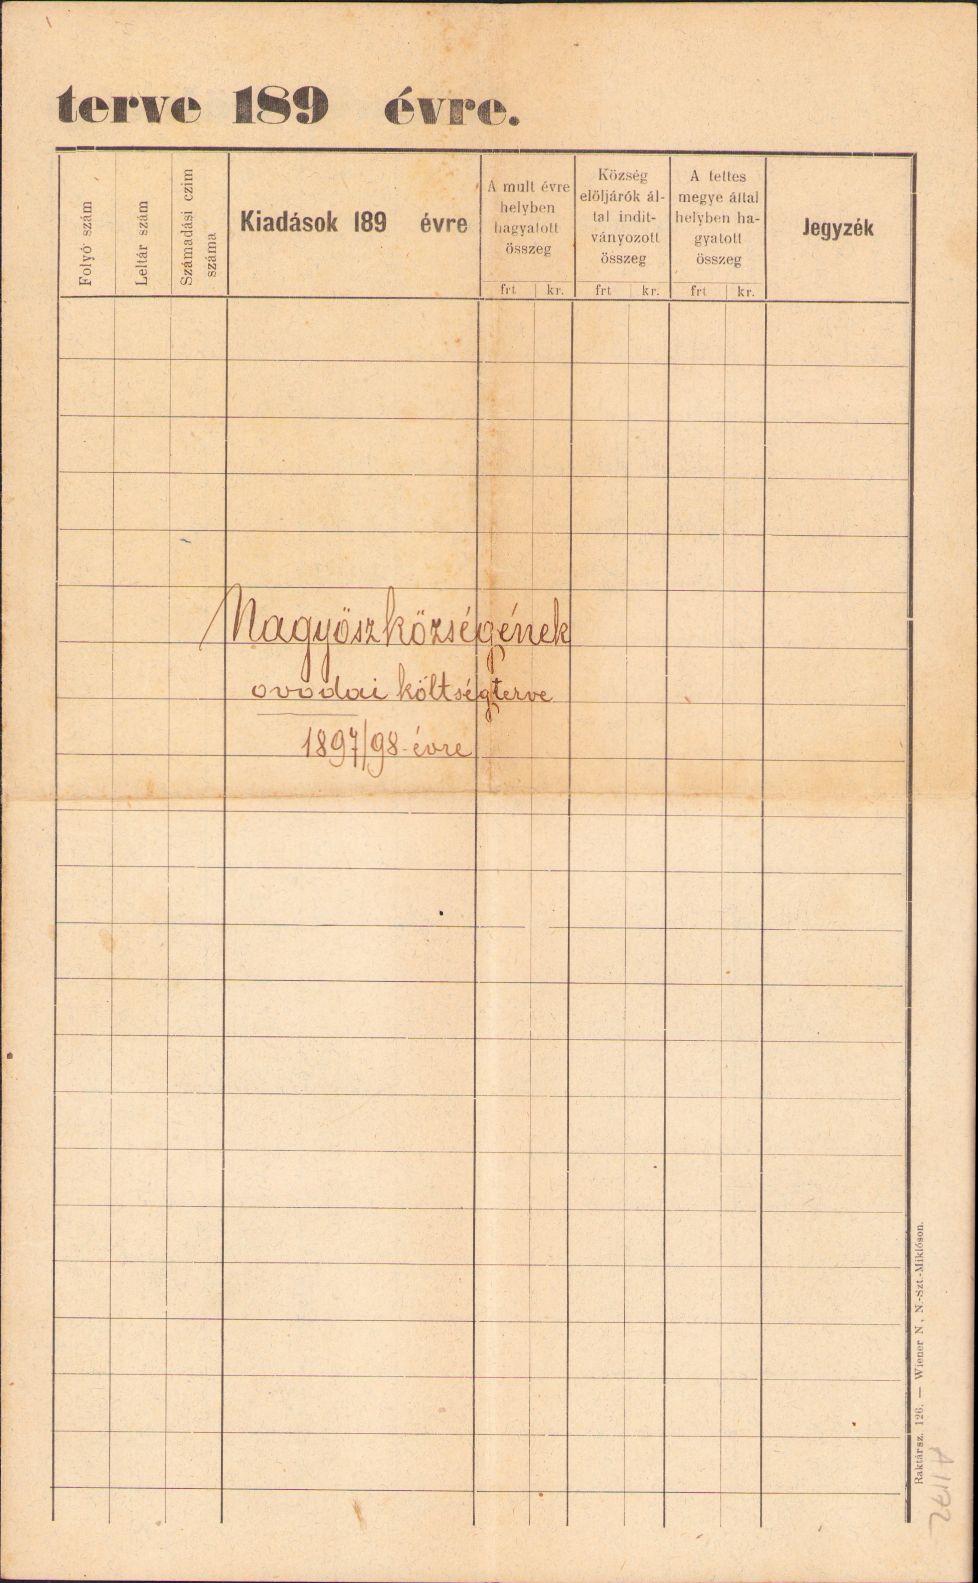 terve 189 évre.
Folyó szám
Leltár szám
Számadási czim
száma
Kiadások 189 évre
A mult évre
helyben
hagyatott
összeg
frt kr.
Község
elöljárók ál-
tal indit-
ványozott
összeg
frt kr.
A tettes
megye által
helyben ha-
gyatott
összeg
frt kr.
Jegyzék
Nagyöszközségének
ovodai költségterve
1897/98 évre
Raktársz. 126. — Wiener N., N.-Szt.-Miklóson.